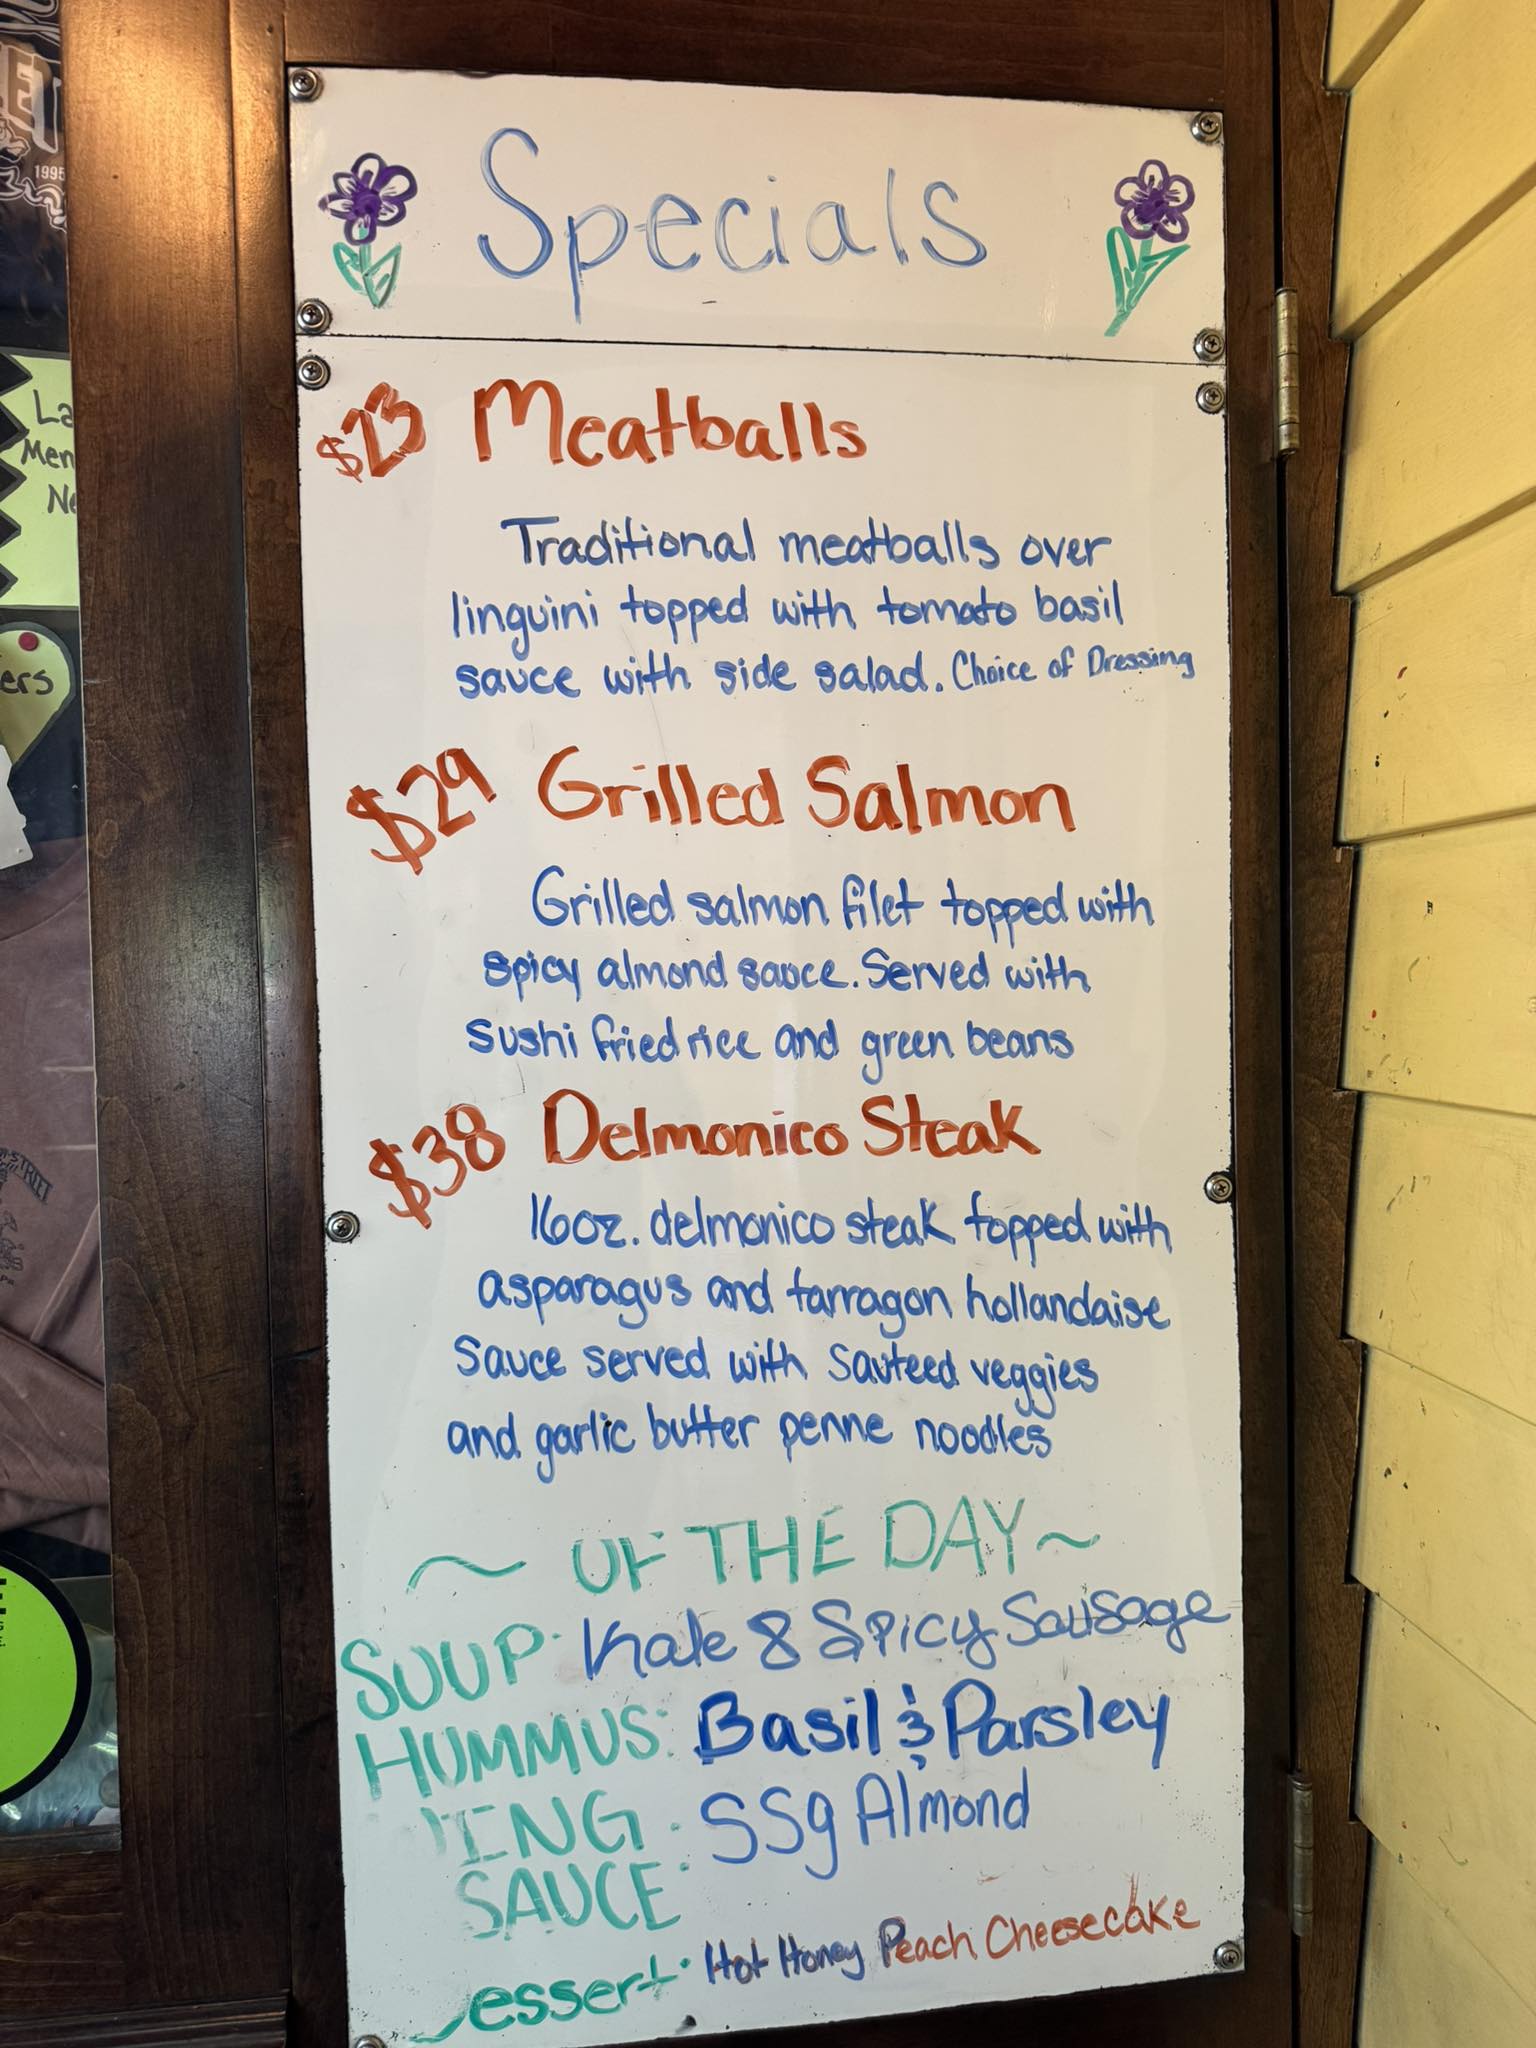 Specials
$23 Meatballs
Traditional meatballs over
linguini topped with tomato basil
sauce with side salad. Choice of Dressing
$29 Grilled Salmon
Grilled salmon filet topped with
spicy almond sauce. Served with
sushi fried rice and green beans
$38 Delmonico Steak
16oz. delmonico steak topped with
asparagus and tarragon hollandaise
Sauce served with Sauteed veggies
and garlic butter penne noodles
~ OF THE DAY ~
SOUP: Kale & Spicy Sausage
HUMMUS: Basil & Parsley
ING SAUCE: SSg Almond
essert: Hot Honey Peach Cheesecake
1995
La
Men
Ne
ers
STREET